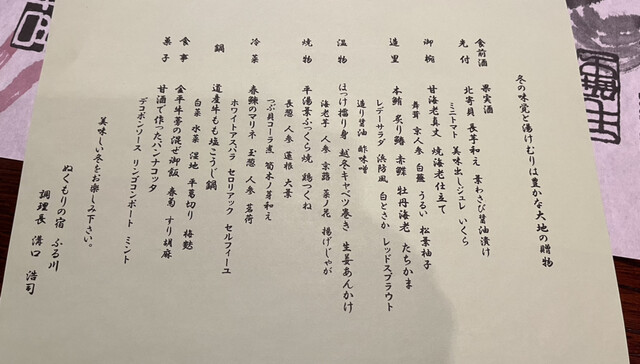 冬の味覚と湯けむりは豊かな大地の贈物
食前酒 果実酒
先付 北寄貝 長芋和え 葉わさび醤油漬け
ミニトマト 美味出しジュレ いくら
御椀 甘海老真丈 焼海老仕立て
舞茸 京人参 白髪 うるい 松葉柚子
造里 本鮪 炙り鰆 赤鰈 牡丹海老 たちかま
レデーサラダ 浜防風 白とさか レッドスプラウト
造り醤油 酢味噌
温物 ほっけ擂り身 越冬キャベツ巻き 生姜あんかけ
海老芋 人参 京蕗 菜ノ花 揚げじゃが
焼物 平湯葉ふっくら焼 鶏つくね
長葱 人参 蓮根 大葉
つぶ貝コーラ煮 筍木ノ芽和え
冷菜 春鰊のマリネ 玉葱 人参 茗荷
ホワイトアスパラ セロリアック セルフィーユ
鍋 道産牛もも塩こうじ鍋
白菜 水菜 湿地 平葛切り 梅麩
食事 金平牛蒡の混ぜ御飯 春菊 すり胡麻
菓子 甘酒で作ったパンナコッタ
デコポンソース リンゴコンポート ミント
美味しい冬をお楽しみ下さい。
ぬくもりの宿 ふる川
調理長 溝口 浩司